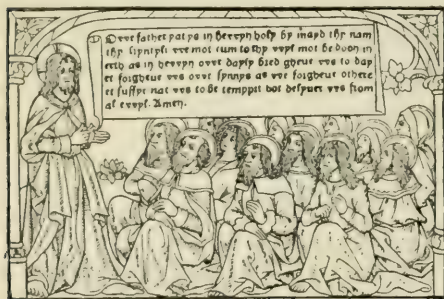 Ovre father yat ys in hevvyn holy by mayd thy nam
thy mot cum to thy vvyl mot be doon in
erth as in hevvyn ovre dayly bred gheve vvs to day
et forgheve vvs ovvr synnys as vve forgheve othere
et suffyr nat vvs to be temptyt bot delyver vvs from
al evvyl. Amen.